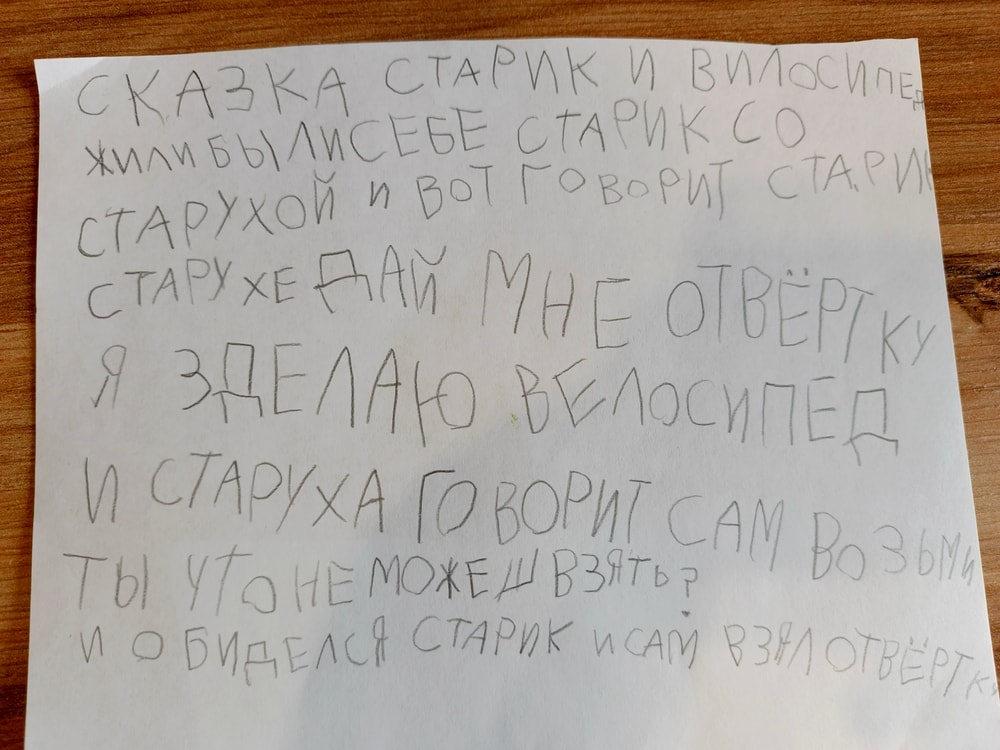 СКАЗКА СТАРИК И ВИЛОСИПЕД
ЖИЛИ БЫЛИ СЕБЕ СТАРИК СО
СТАРУХОЙ И ВОТ ГОВОРИТ СТАРИК
СТАРУХЕ ДАЙ МНЕ ОТВЁРТКУ
Я ЗДЕЛАЮ ВЕЛОСИПЕД
И СТАРУХА ГОВОРИТ САМ ВОЗЬМИ
ТЫ ЧТО НЕ МОЖЕШ ВЗЯТЬ?
И ОБИДЕЛСЯ СТАРИК И САМ ВЗЯЛ ОТВЁРТКУ